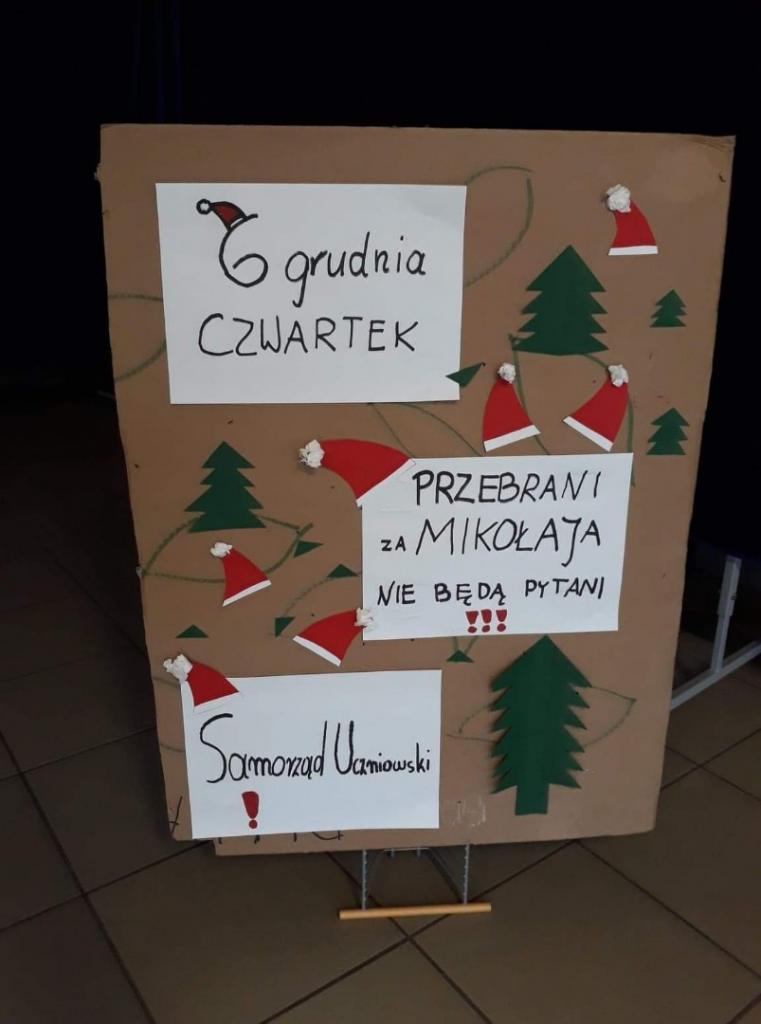 6 grudnia
CZWARTEK
PRZEBRANI
ZA MIKOŁAJA
NIE BĘDĄ PYTANI
!!!
Samorząd Uczniowski
!